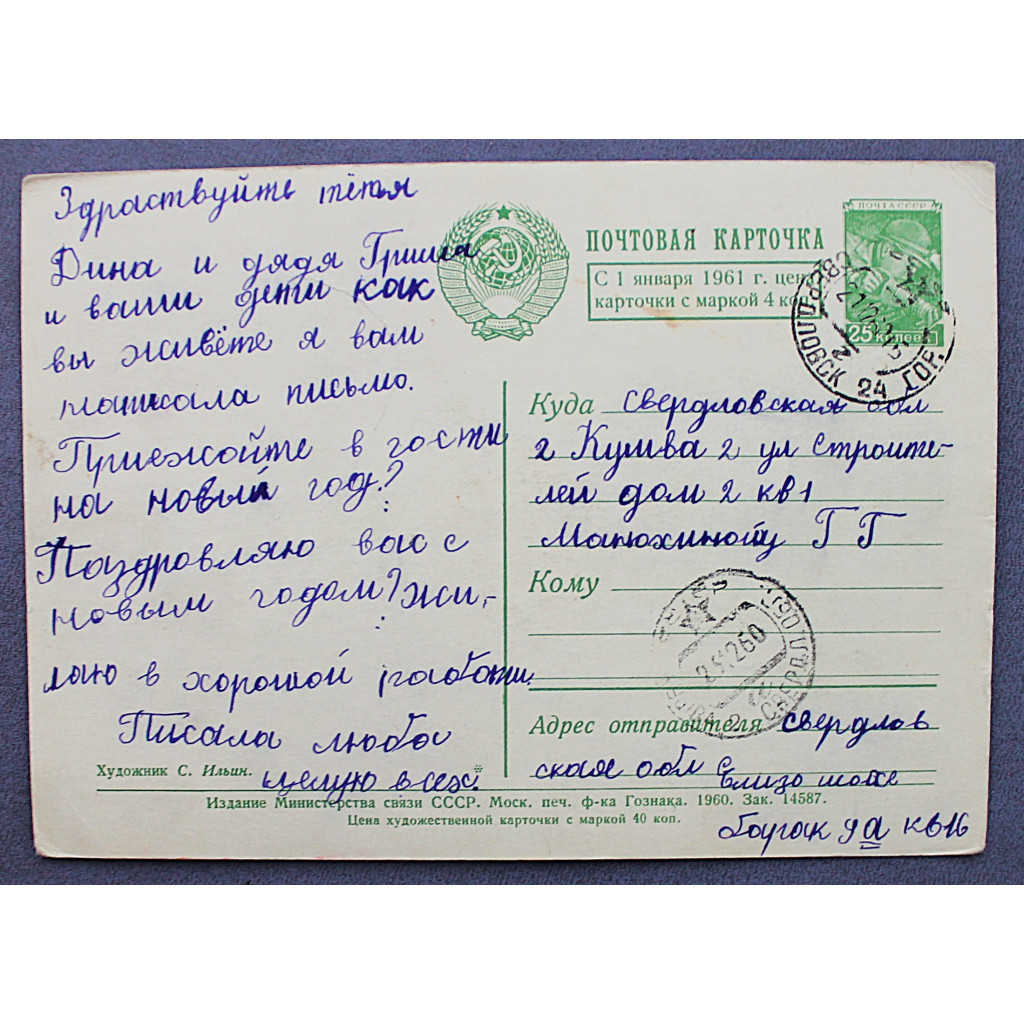 Здраствуйте тётя
Дина и дядя Гриша
и ваши дети как
вы живёте я вам
написала письмо.
Приежайте в гости
на новый год?
Поздровляю вас с
новым годом? жи,-
лаю в хорошой работи.
Писала люба
целую всех
Художник С. Ильин.
ПОЧТОВАЯ КАРТОЧКА
С 1 января 1961 г. цена
карточки с маркой 4 коп.
ПОЧТА СССР
25 копеек
СВЕРДЛОВСК 24 ГОР.
Куда Свердловская обл
г Кушва 2 ул Строите-
лей дом 2 кв 1
Манюхиной Г Г
Кому
Адрес отправителя Свердлов
ская обл с Елизо
9а кв 16
Издание Министерства связи СССР. Моск. печ. ф-ка Гознака. 1960. Зак. 14587.
Цена художественной карточки с маркой 40 коп.